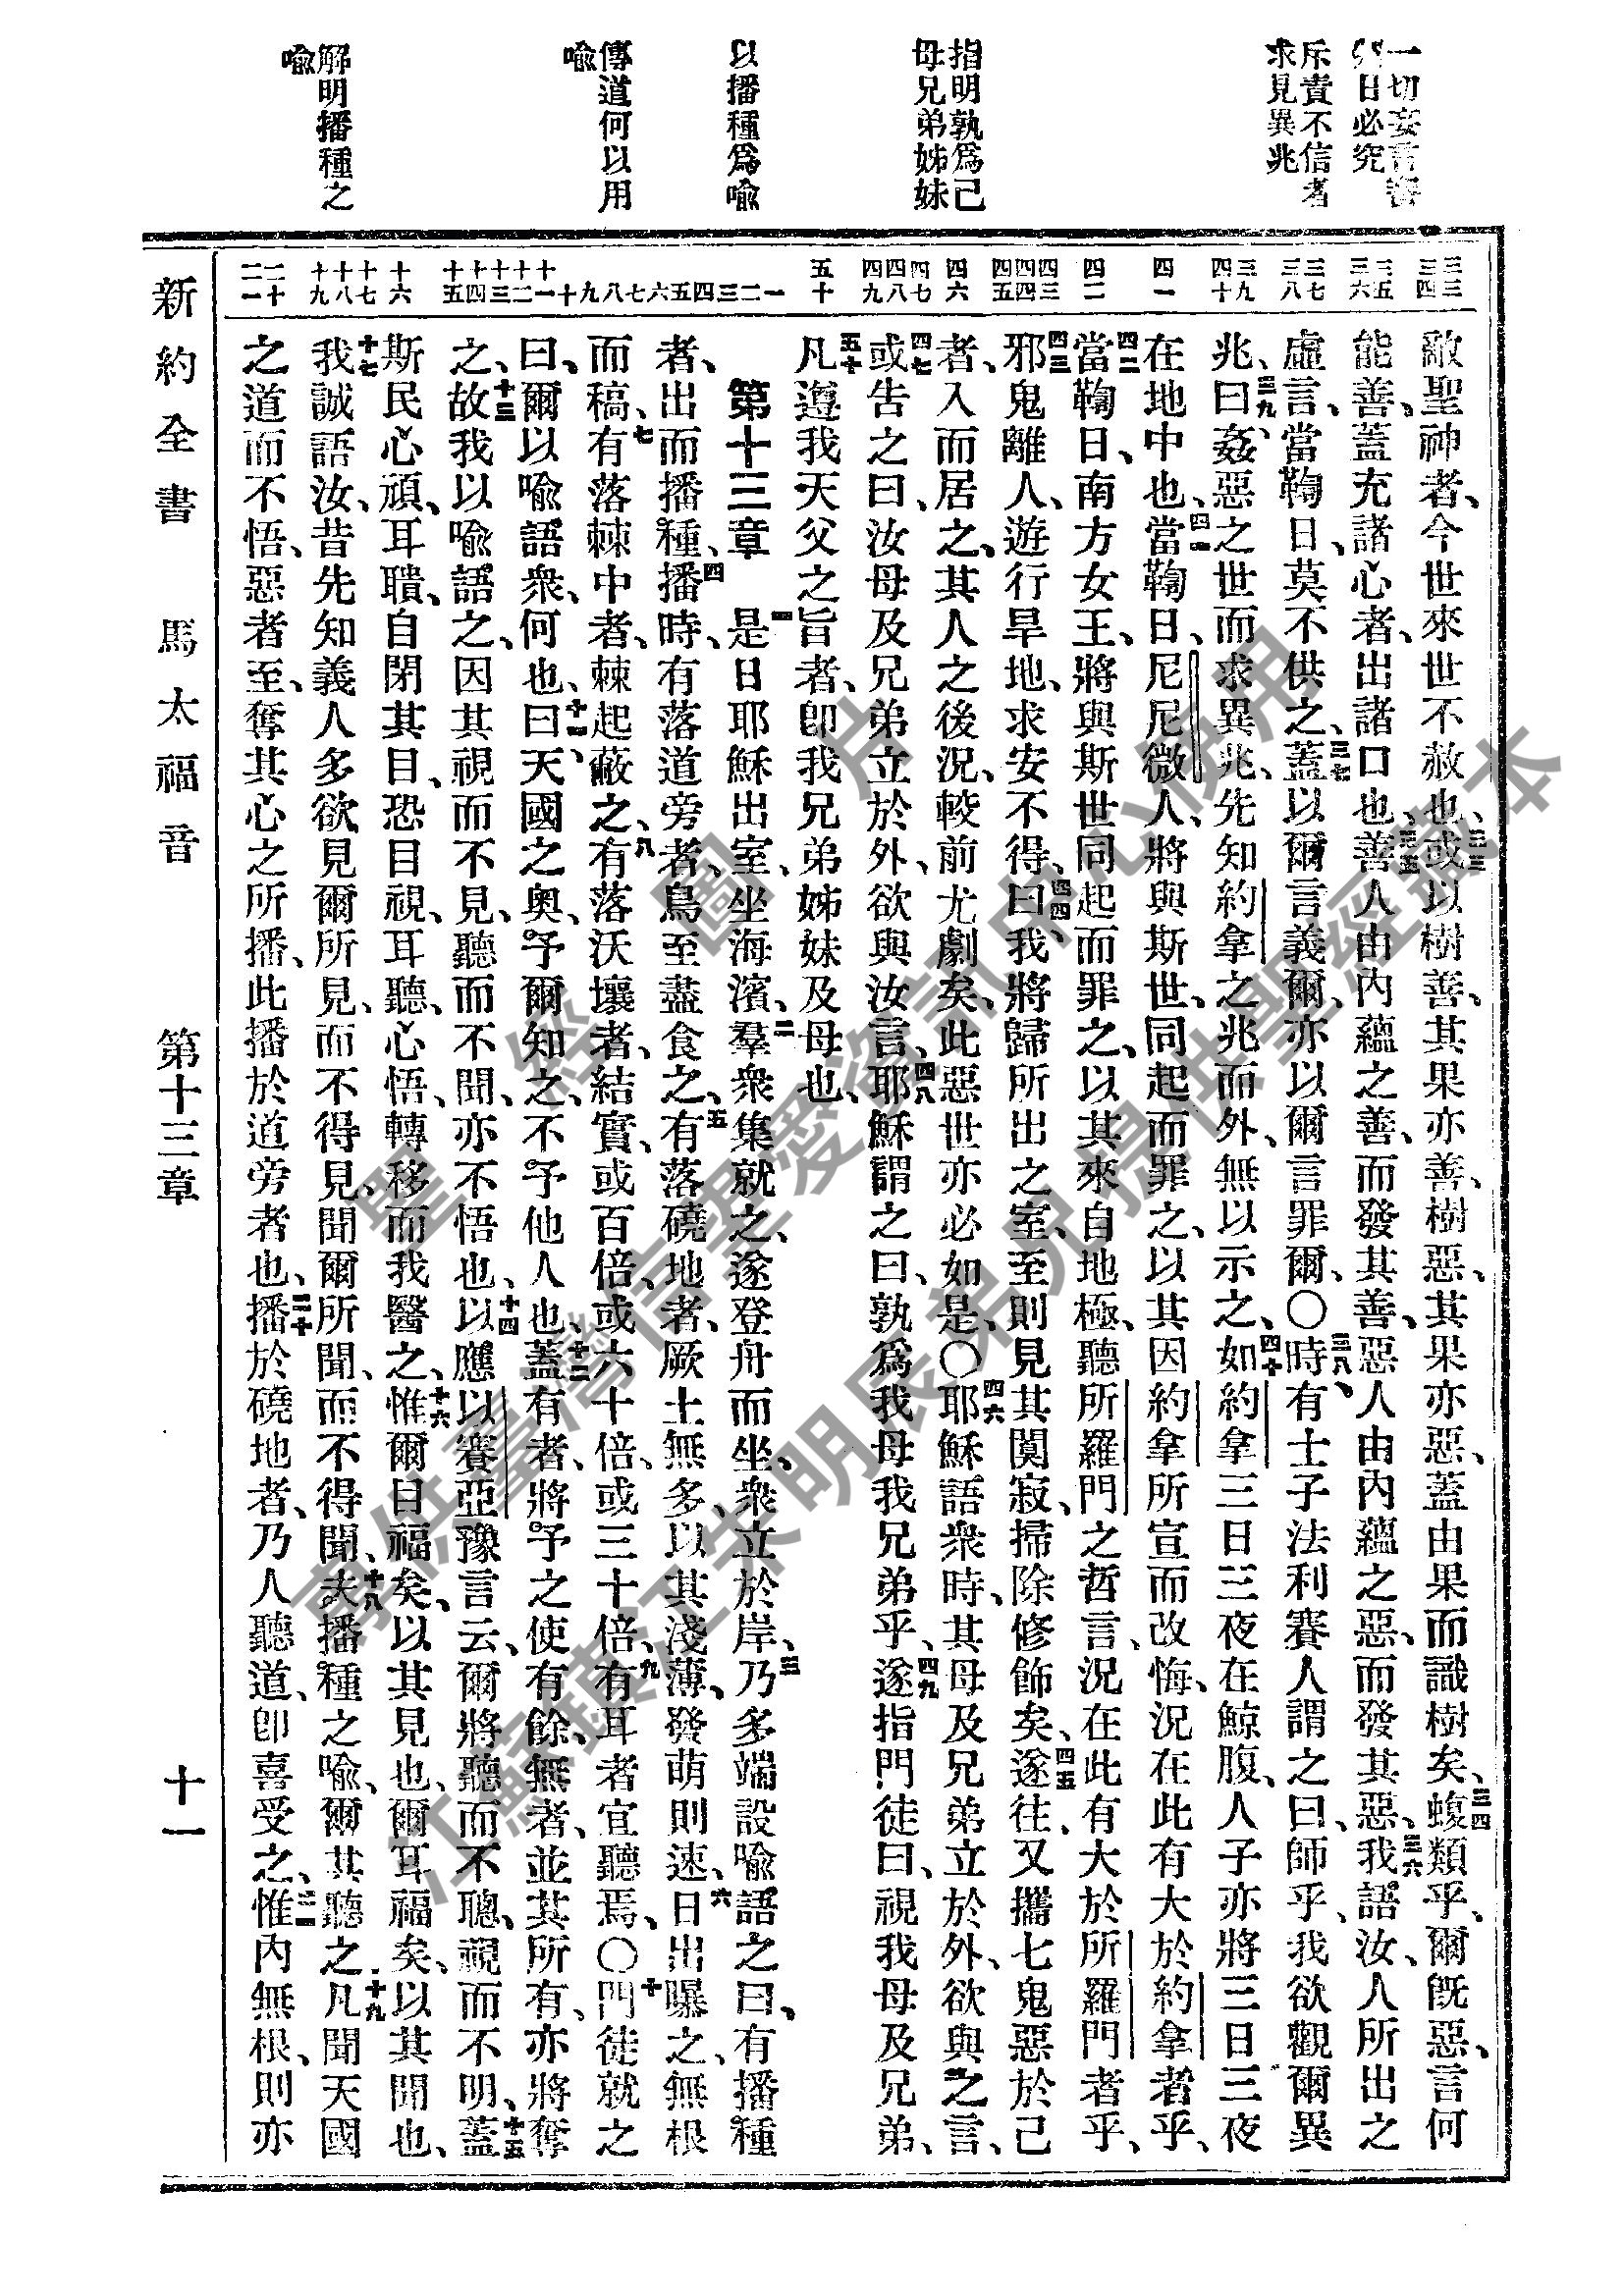 一切妄言審
日必究
斥責不信者
求見異兆
指明孰爲己
母兄弟姊妹
以播種爲喩
傳道何以用
喩
解明播種之
喩
三三 三四 三五 三六 三七 三八 三九 四十 四一 四二 四三 四四 四五 四六 四七 四八 四九 五十 一 二 三 四 五 六 七 八 九 十 十一 十二 十三 十四 十五 十六 十七 十八 十九 二十 二一
敵聖神者、今世來世不赦也、三三或以樹善、其果亦善、樹惡、其果亦惡、蓋由果而識樹矣、三四蝮類乎、爾旣惡、言何
能善、蓋充諸心者、出諸口也、三五善人由內蘊之善、而發其善、惡人由內蘊之惡、而發其惡、三六我語汝、人所出之
虛言、當鞫日、莫不供之、三七蓋以爾言義爾、亦以爾言罪爾、〇三八時、有士子法利賽人謂之曰、師乎、我欲觀爾異
兆、三九曰、姦惡之世而求異兆、先知約拿之兆而外、無以示之、四十如約拿三日三夜在鯨腹、人子亦將三日三夜
在地中也、四一當鞫日、尼尼微人、將與斯世、同起而罪之、以其因約拿所宣而改悔、況在此有大於約拿者乎、
四二當鞫日、南方女王、將與斯世同起而罪之、以其來自地極、聽所羅門之哲言、況在此有大於所羅門者乎、
四三邪鬼離人、遊行旱地、求安不得、四四曰、我將歸所出之室、至則見其闃寂、掃除修飾矣、四五遂往、又攜七鬼惡於己
者、入而居之、其人之後況、較前尤劇矣、此惡世亦必如是、〇四六耶穌語衆時、其母及兄弟立於外、欲與之言、
四七或告之曰、汝母及兄弟立於外、欲與汝言、四八耶穌謂之曰、孰爲我母我兄弟乎、四九遂指門徒曰、視我母及兄弟、
五十凡遵我天父之旨者、卽我兄弟姊妹及母也、
第十三章 一是日耶穌出室、坐海濱、二羣衆集就之、遂登舟而坐、衆立於岸、三乃多端設喩語之曰、有播種
者、出而播種、四播時、有落道旁者、鳥至盡食之、五有落磽地者、厥土無多、以其淺薄、發萌則速、六日出曝之、無根
而稿、七有落棘中者、棘起蔽之、八有落沃壤者、結實、或百倍、或六十倍、或三十倍、九有耳者宜聽焉、〇十門徒就之
曰、爾以喩語衆、何也、十一曰、天國之奧、予爾知之、不予他人也、十二蓋有者、將予之使有餘、無者、並其所有、亦將奪
之、十三故我以喩語之、因其視而不見、聽而不聞、亦不悟也、十四以應以賽亞豫言云、爾將聽而不聰、視而不明、十五蓋
斯民心頑、耳聵、自閉其目、恐目視、耳聽、心悟、轉移而我醫之、十六惟爾目福矣、以其見也、爾耳福矣、以其聞也、
十七我誠語汝、昔先知義人多欲見爾所見、而不得見、聞爾所聞、而不得聞、十八夫播種之喩、爾其聽之、十九凡聞天國
之道而不悟、惡者至、奪其心之所播、此播於道旁者也、二十播於磽地者、乃人聽道、卽喜受之、二一惟內無根、則亦
新約全書 馬太福音 第十三章 十一
聖經圖片
專供臺灣信望愛資訊中心使用
江蘇鎮江朱明辰弟兄提供聖經藏本